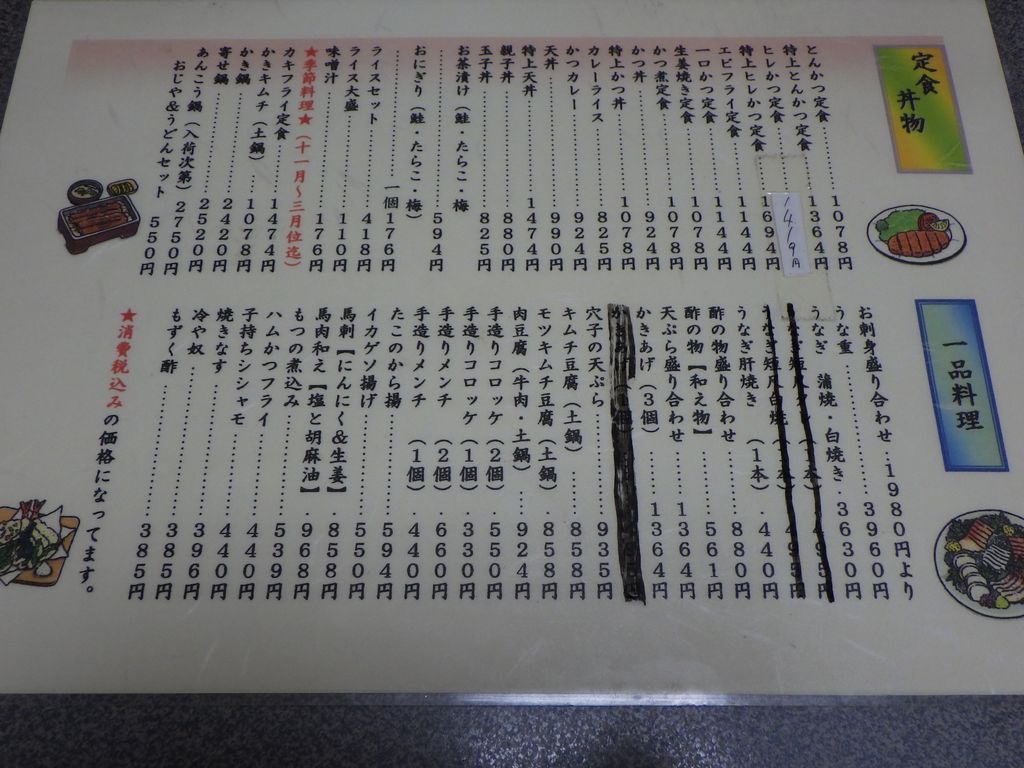 定食
丼物
とんかつ定食 1078円
特上とんかつ定食 1364円
ヒレかつ定食 1419円
特上ヒレかつ定食 1694円
エビフライ定食 1144円
一口かつ定食 1144円
生姜焼き定食 1078円
かつ煮定食 1078円
かつ丼 924円
特上かつ丼 1078円
カレーライス 825円
かつカレー 924円
天丼 990円
特上天丼 1474円
親子丼 880円
玉子丼 825円
お茶漬け(鮭・たらこ・梅 594円
おにぎり(鮭・たらこ・梅) 一個176円
ライスセット 418円
ライス大盛 110円
味噌汁 176円
★季節料理★(十一月～三月位迄)
カキフライ定食 1474円
かきキムチ(土鍋) 1078円
かき鍋 2420円
寄せ鍋 2520円
あんこう鍋(入荷次第) 2750円
おじや&うどんセット 550円
一品料理
お刺身盛り合わせ 1980円より
うな重 3960円
うなぎ 蒲焼・白焼き 3630円
うなぎ肝焼き(1本) 440円
酢の物盛り合わせ 880円
酢の物【和え物】 561円
天ぷら盛り合わせ 1364円
かきあげ(3個) 1364円
穴子の天ぷら 935円
キムチ豆腐(土鍋) 858円
モツキムチ豆腐(土鍋) 858円
肉豆腐(牛肉・土鍋) 924円
手造りコロッケ(2個) 550円
手造りコロッケ(1個) 330円
手造りメンチ(2個) 660円
手造りメンチ(1個) 440円
たこのから揚 594円
イカゲソ揚げ 550円
馬刺【にんにく&生姜】 858円
馬肉和え【塩と胡麻油】 968円
もつの煮込み 539円
ハムかつフライ 440円
子持ちシシャモ 440円
焼きなす 396円
冷や奴 385円
もずく酢 385円
★消費税込みの価格になってます。